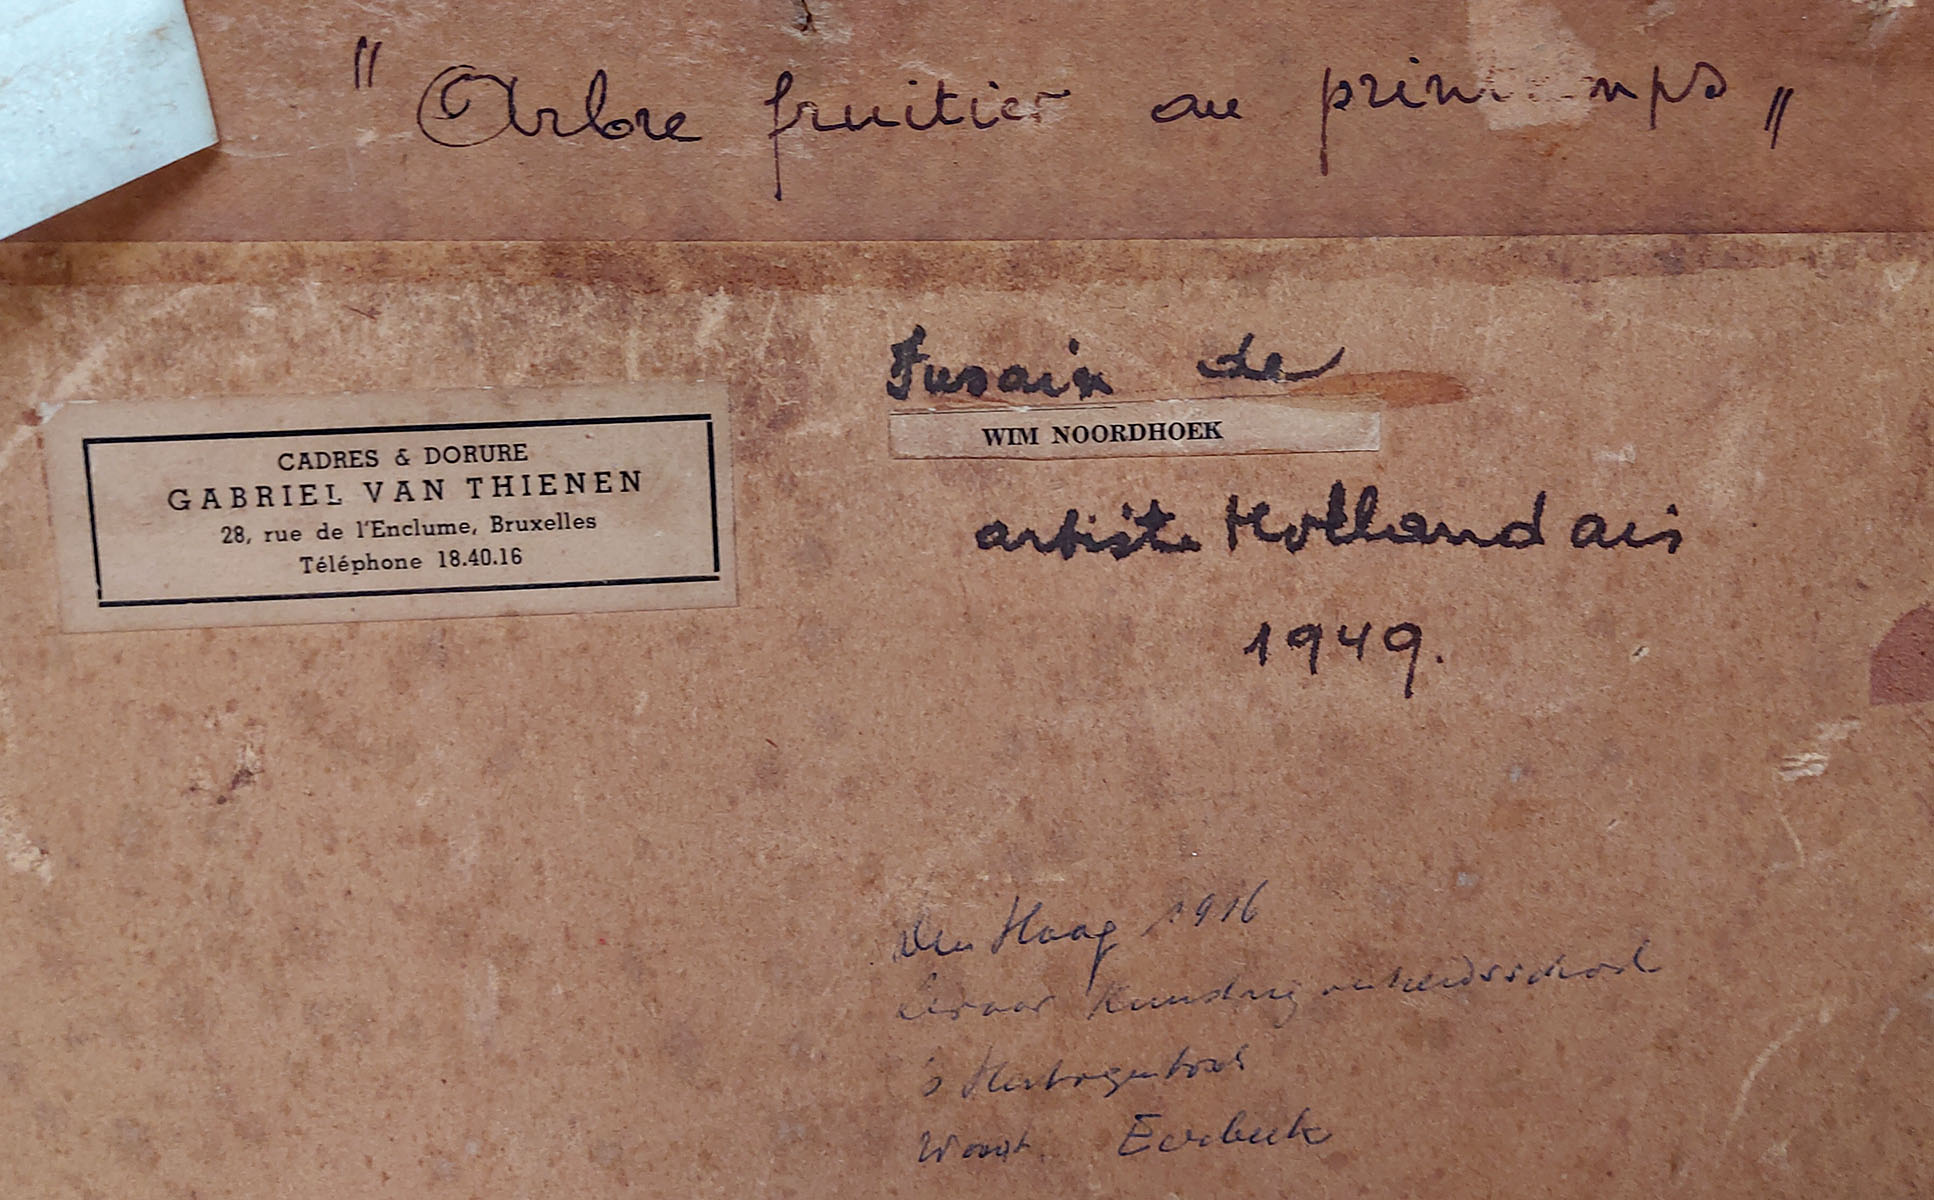 " Arbre fruitier au printemps "
CADRES & DORURE
GABRIEL VAN THIENEN
28, rue de l'Enclume, Bruxelles
Téléphone 18.40.16
Fusain de
WIM NOORDHOEK
artiste Hollandais
1949.
Den Haag 1916
leraar Kunstnijverheidsschool
's Hertogenbosch
Woont Eerbeek